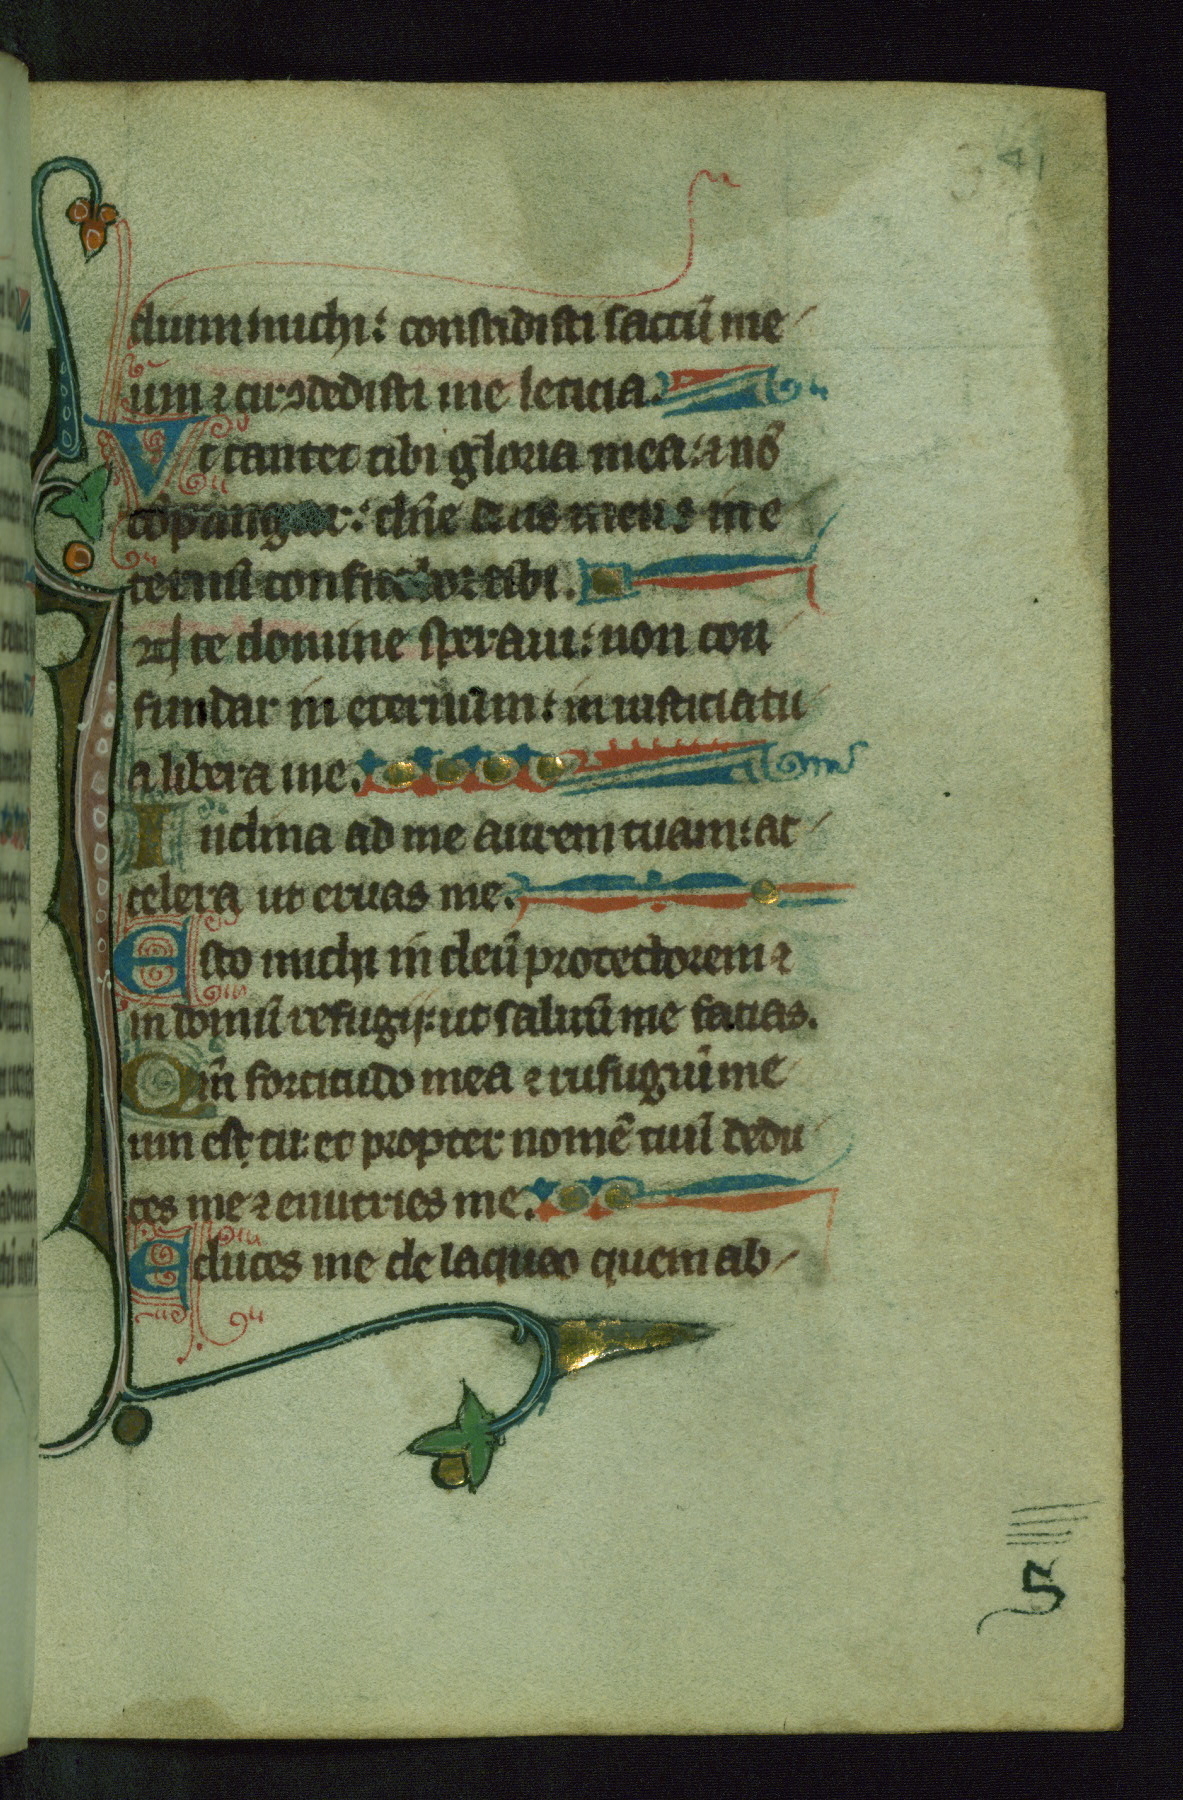 41
dium michi: conscidisti saccū me
um ⁊ circ̄dedisti me leticia.
Vt cantet tibi gloria mea: ⁊ nō
cōpungar: dn̄e deus meus in e
ternū confitebor tibi.
te domine speraui: non con
fundar in eternum: in iusticia tu
a libera me.
Inclina ad me aurem tuam: ac
celera ut eruas me.
Esto michi in deū protectorem ⁊
in domū refugij: ut saluū me facias.
Qm̄ fortitudo mea ⁊ rufugiū me
um est tu: et propter nomē tuū dedu
ces me ⁊ enutries me.
Educes me de laqueo quem ab
5